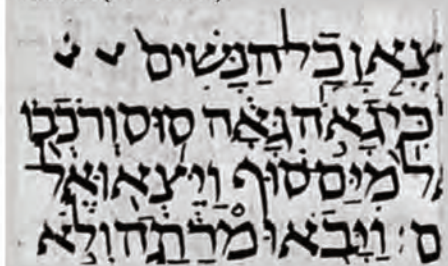 צאן כָל הַנָּשִׁים
כִּי גָאֹה גָּאָה סוּס וְרֹכְבוֹ
ל מִיַּם סוּף וַיֵּצְאוּ אֶל
ם׃ וַיָּבֹאוּ מָרָתָה וְלֹא